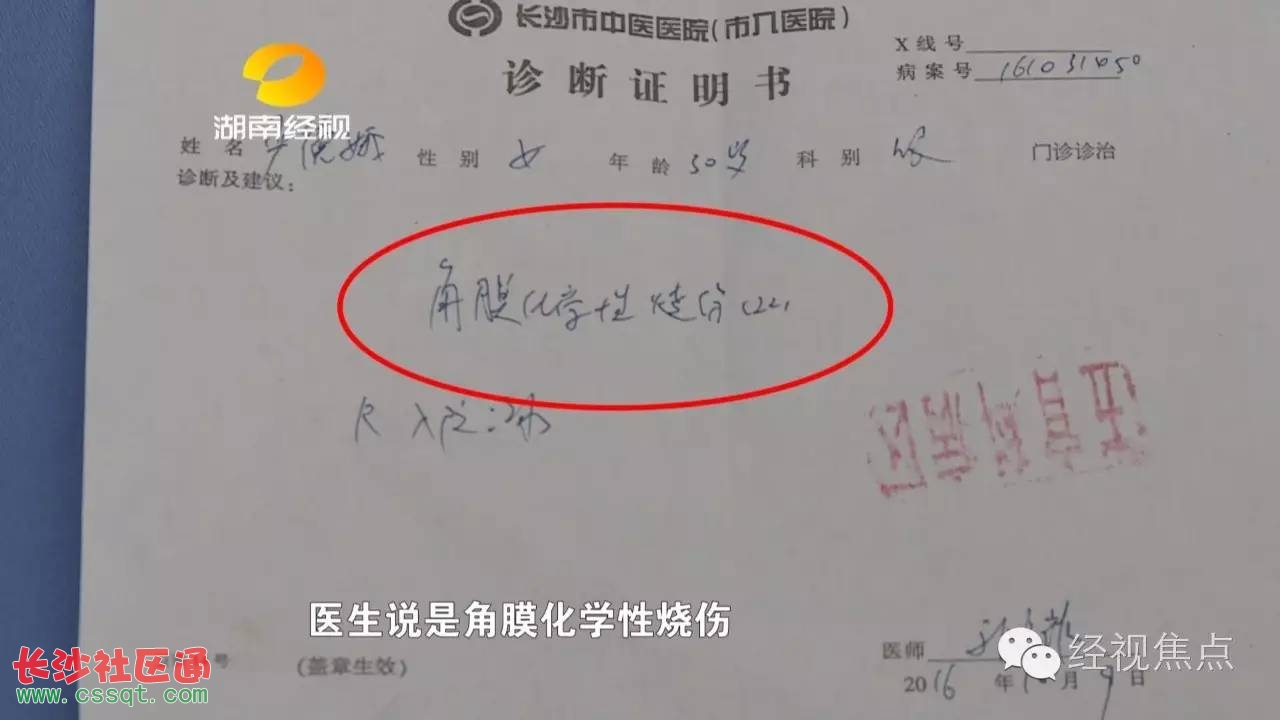 长沙市中医医院(市八医院)
诊断证明书
X线号
病案号 161031450
湖南经视
姓名 性别 女 年龄 30岁 科别 眼 门诊诊治
诊断及建议:
角膜化学性烧伤
入院
医生说是角膜化学性烧伤
长沙社区通
www.cssqt.com
号
(盖章生效)
医师
经视焦点
2016年10月9日